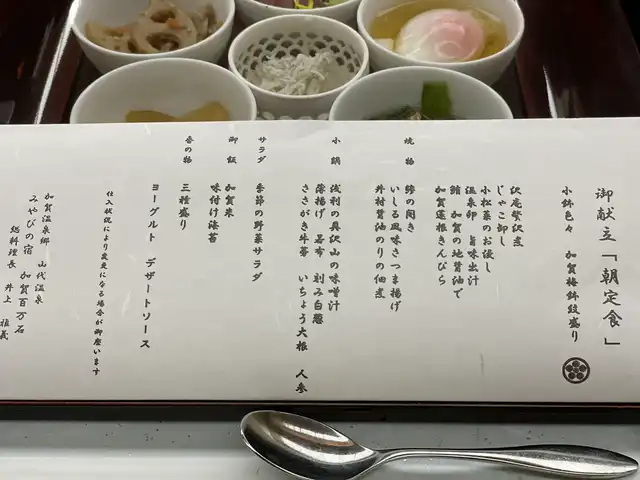 御献立「朝定食」
小鉢色々　加賀梅鉢紋盛り
沢庵贅沢煮
じゃこ卸し
小松菜のお浸し
温泉卵　旨味出汁
鮪　加賀の地醤油で
加賀蓮根きんぴら
焼物
鯵の開き
いしる風味さつま揚げ
丼村醤油のりの佃煮
小鍋
浅利の具沢山の味噌汁
薄揚げ　若布　刻み白葱
ささがき牛蒡　いちょう大根　人参
サラダ
季節の野菜サラダ
御飯
加賀米
味付け海苔
香の物
三種盛り
ヨーグルト　デザートソース
仕入状況により変更になる場合が御座います
加賀温泉郷　山代温泉
みやびの宿　加賀百万石
総料理長　井上　雅義